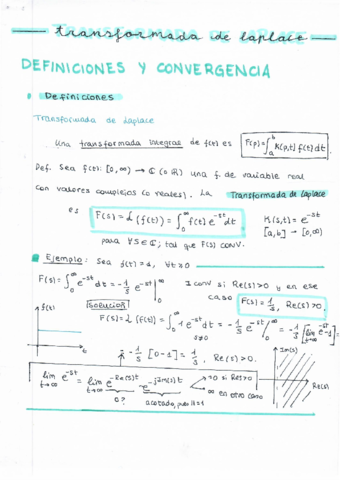 transformada de laplace
DEFINICIONES Y CONVERGENCIA
Definiciones
Transformada de Laplace
Una transformada integral de f(t) es F(p)=∫_a^b K(p,t) f(t) dt.
Def. Sea f(t): [0,∞) → ℂ (o ℝ) una f. de variable real
con valores complejos (o reales). La Transformada de Laplace
es F(s) = ℒ(f(t)) = ∫_0^∞ f(t) e^{-st} dt K(s,t) = e^{-st}
[a,b] → [0,∞)
para ∀ s ∈ ℂ; tal que F(s) conv.
Ejemplo: Sea f(t)=1, ∀t≥0
F(s) = ∫_0^∞ e^{-st} dt = -1/s e^{-st} |_0^∞ I conv si Re(s)>0 y en ese
caso F(s) = 1/s, Re(s)>0.
Solución
f(t)
F(s) = ℒ(f(t)) = ∫_0^∞ 1 e^{-st} dt = -1/s e^{-st} |_0^∞ = -1/s [lim_{t→∞} e^{-st} - 1] =
s≠0
t
= -1/s [0-1] = 1/s, Re(s)>0.
Im(s)
Re(s)
lim_{t→∞} e^{-st} = lim_{t→∞} e^{-Re(s)t} e^{-jIm(s)t} → 0 si Re(s)>0
∞ en otro caso
0?
acotada, pues ||=1